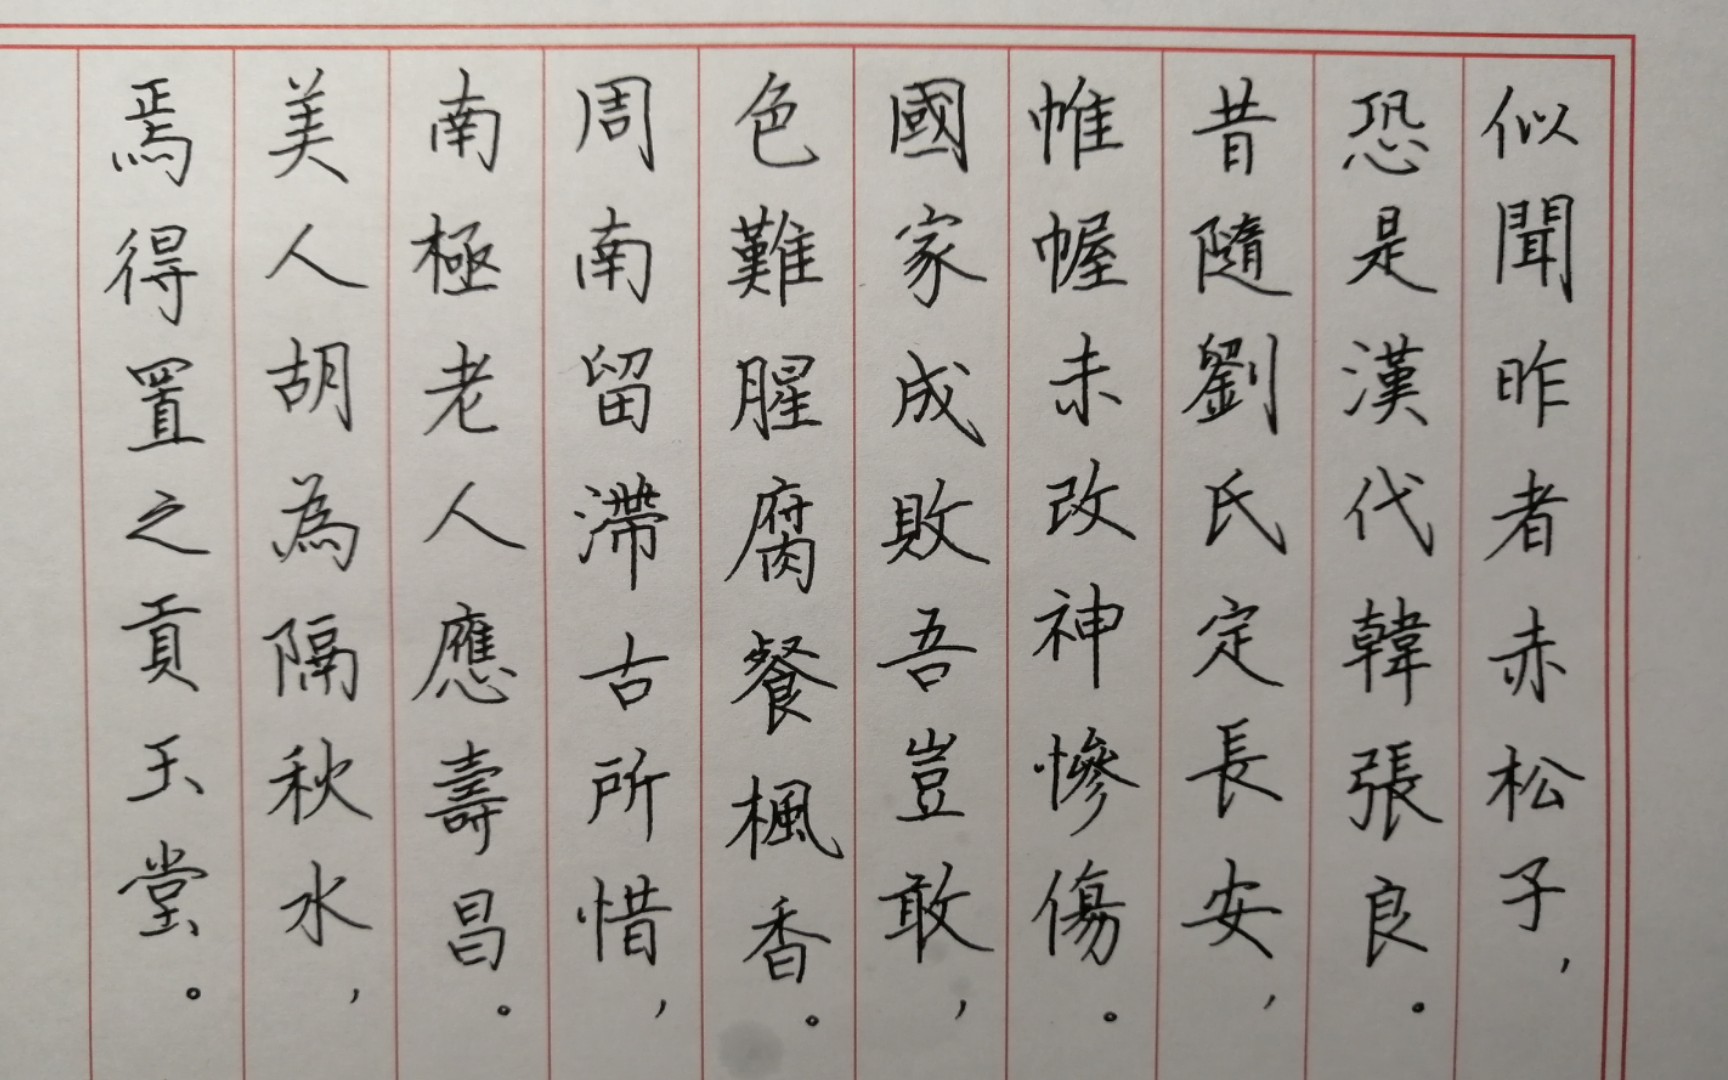 似聞昨者赤松子，
恐是漢代韓張良。
昔隨劉氏定長安，
帷幄未改神慘傷。
國家成敗吾豈敢，
色難腥腐餐楓香。
周南留滯古所惜，
南極老人應壽昌。
美人胡為隔秋水，
焉得置之貢玉堂。